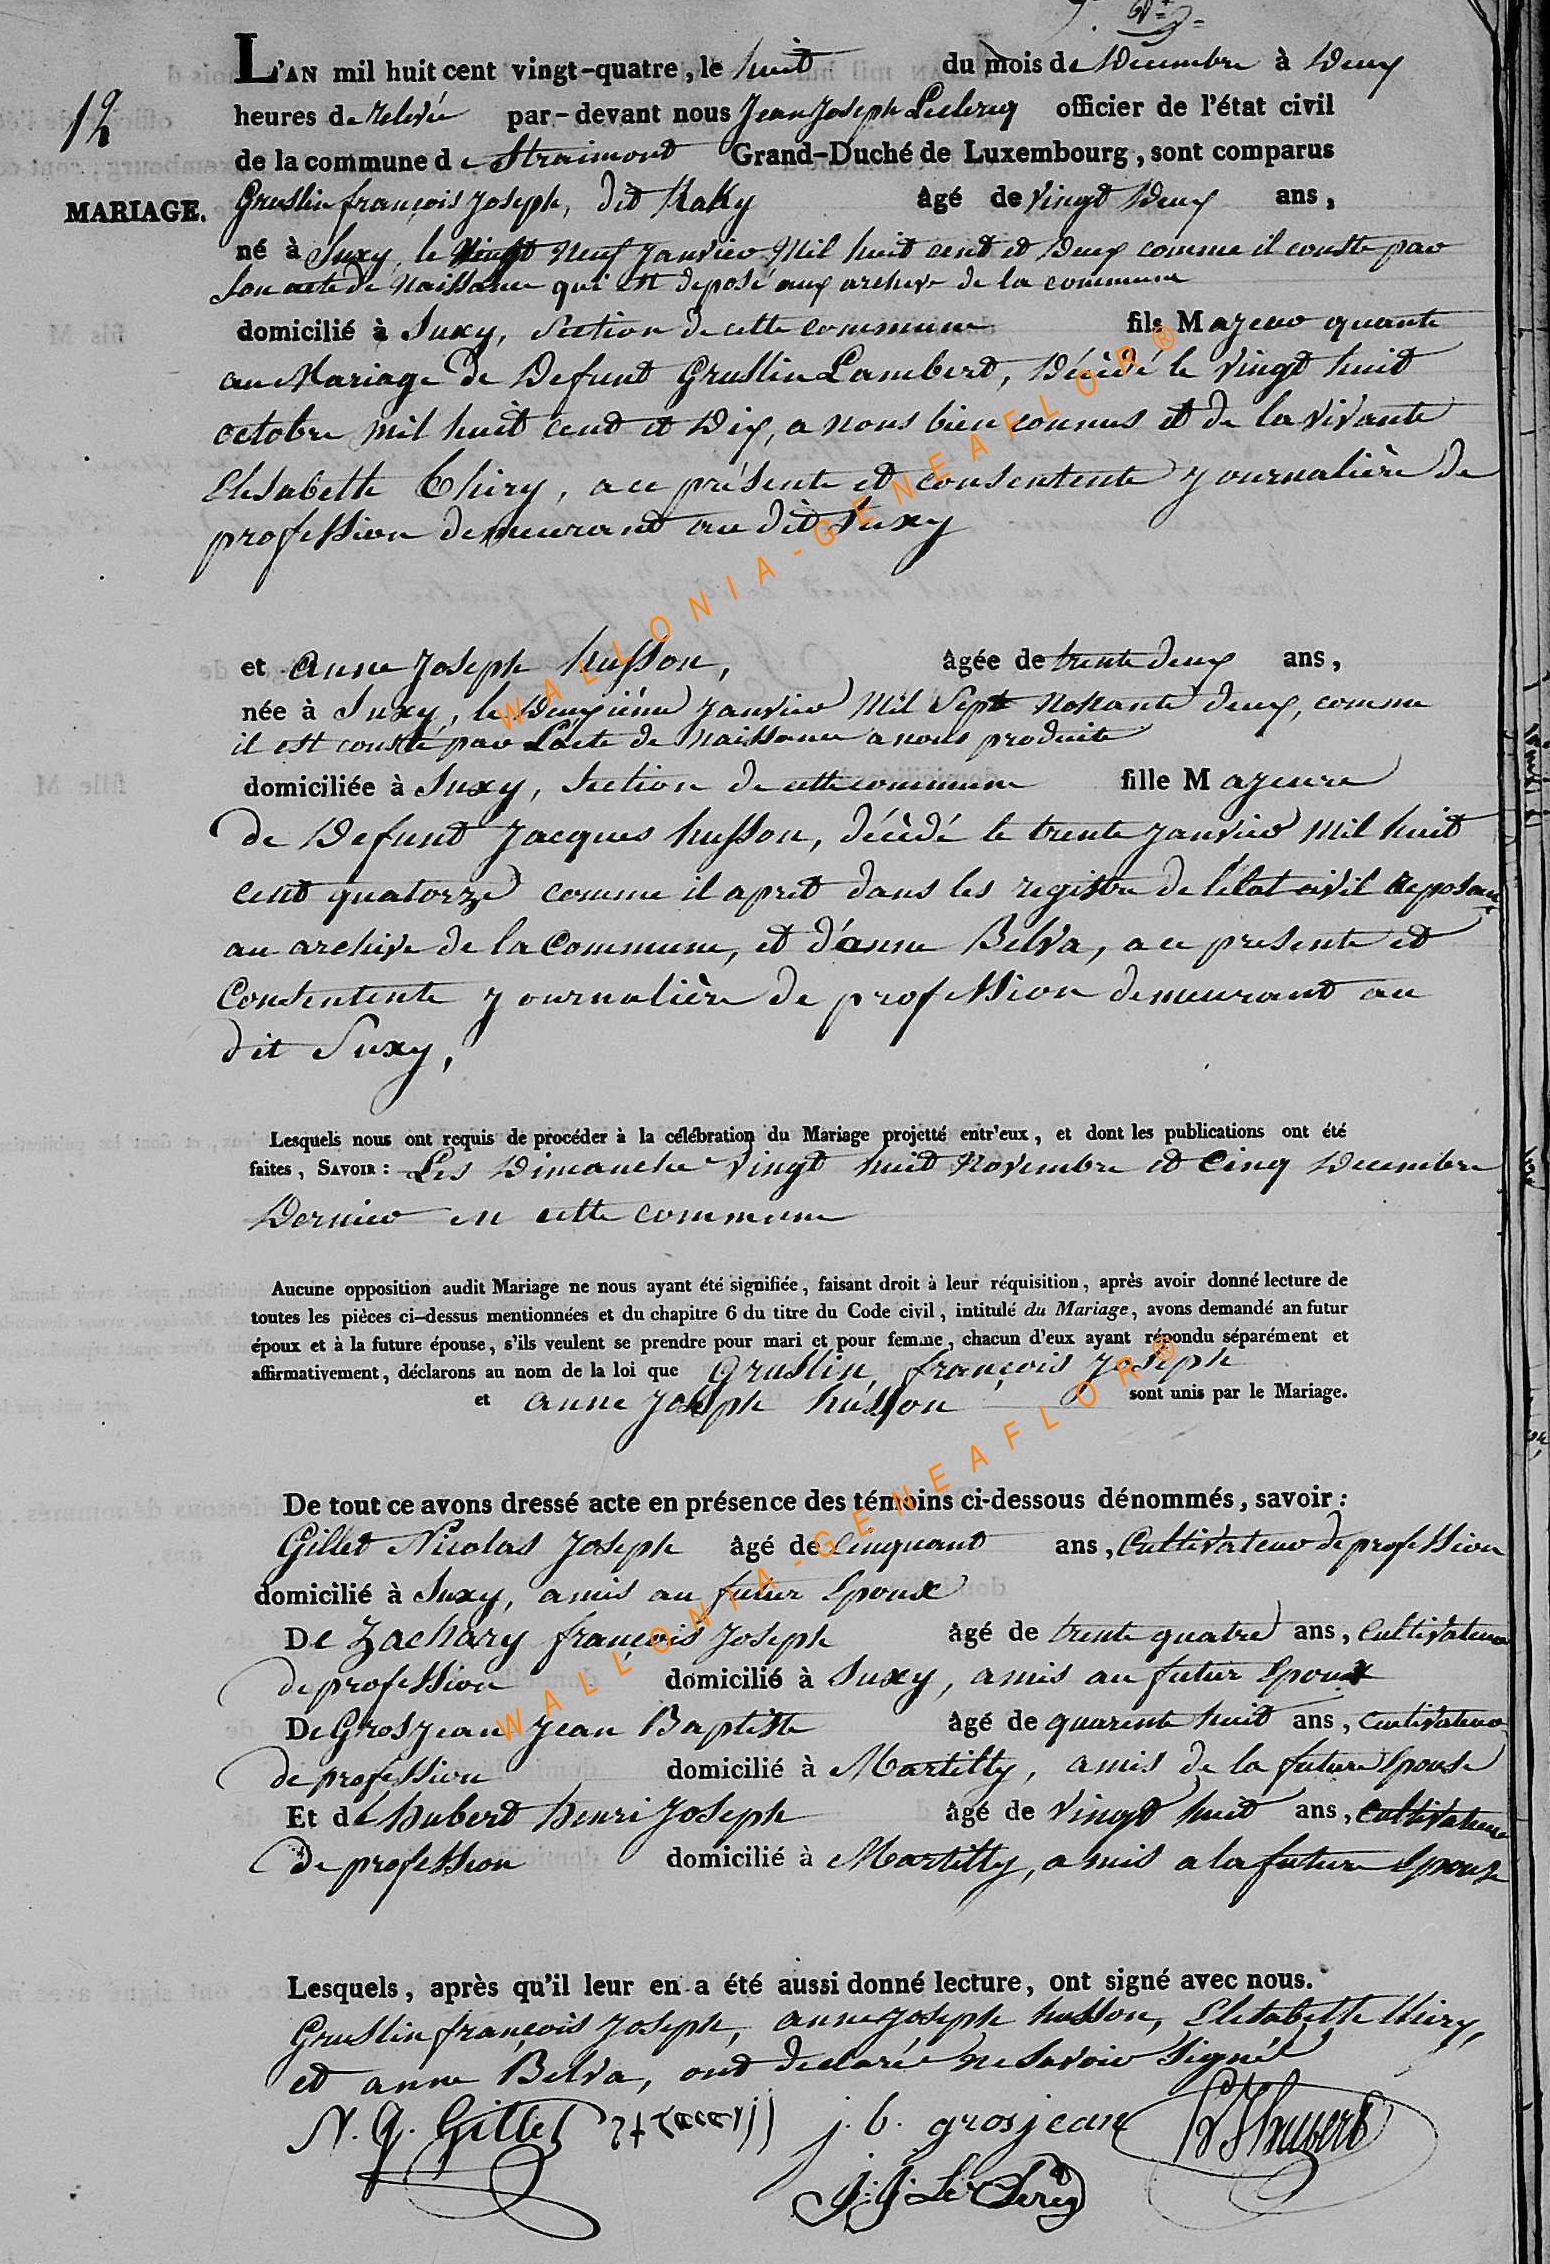 L'AN mil huit cent vingt-quatre, le huit du mois de Decembre à Deux
12
heures de relevée par-devant nous Jean Joseph Leclercq officier de l'état civil
de la commune de Straimont Grand-Duché de Luxembourg, sont comparus
MARIAGE.
Gruslin françois Joseph, dit Kaky âgé de vingt Deux ans,
né à Suxy, le Vingt Neuf Janvier Mil huit cent et Deux comme il conste par
Son acte de Naissance qui est deposé aux archive de la commune
domicilié à Suxy, Section de cette commune fils Majeur quante
au Mariage de Defunt Gruslin Lambert, Décédé le Vingt huit
octobre mil huit cent et Dix, a nous bien connus et de la Vivante
Elisabette Thiry, a ce présente et consentente Journalière de
profession demeurant au dit Suxy
et Anne Joseph husson, âgée de trente deux ans,
née à Suxy, le Deuxiéme Janvier Mil Sept Nonante deux, comme
il est consté par Lacte de Naissance a nous produite
domiciliée à Suxy, Section de cette commune fille Majeure
de Defunt Jacques husson, décédé le trente Janvier Mil huit
cent quatorze comme il apret dans les registre de l'état civil reposant
au archive de la Commune, et d'anne Belva, a ce presente et
Consentente Journalière de profession demeurant au
dit Suxy,
Lesquels nous ont requis de procéder à la célébration du Mariage projetté entr'eux, et dont les publications ont été
faites, SAVOIR: Les Dimanche Vingt huit Novembre et Cinq Decembre
Dernier en cette commune
Aucune opposition audit Mariage ne nous ayant été signifiée, faisant droit à leur réquisition, après avoir donné lecture de
toutes les pièces ci-dessus mentionnées et du chapitre 6 du titre du Code civil, intitulé du Mariage, avons demandé an futur
époux et à la future épouse, s'ils veulent se prendre pour mari et pour femme, chacun d'eux ayant répondu séparément et
affirmativement, déclarons au nom de la loi que Gruslin, françois Joseph
et anne Joseph husson sont unis par le Mariage.
De tout ce avons dressé acte en présence des témoins ci-dessous dénommés, savoir:
Gillet Nicolas Joseph âgé de Cinquant ans, Cultivateur de profession
domicilié à Suxy, amis au futur Epoux
De Zachary françois Joseph âgé de trente quatre ans, Cultivateur
de profession domicilié à Suxy, amis au futur Epoux
De Grosjean Jean Baptiste âgé de quarente huit ans, Cultivateur
de profession domicilié à Martilly, amis de la future Epouse
Et de hubert henri Joseph âgé de Vingt huit ans, Cultivateur
de profession domicilié à Martilly, amis a la future Epouse
Lesquels, après qu'il leur en a été aussi donné lecture, ont signé avec nous.
Gruslin françois Joseph, anne Joseph husson, Elisabette thiry,
et anne Belva, ont declarée ne Savoir Signér
N. J. Gillet j. b. grosjean hJhubert
J: J: LeClercq
WALLONIA-GENEAFLOR®
WALLONIA-GENEAFLOR®